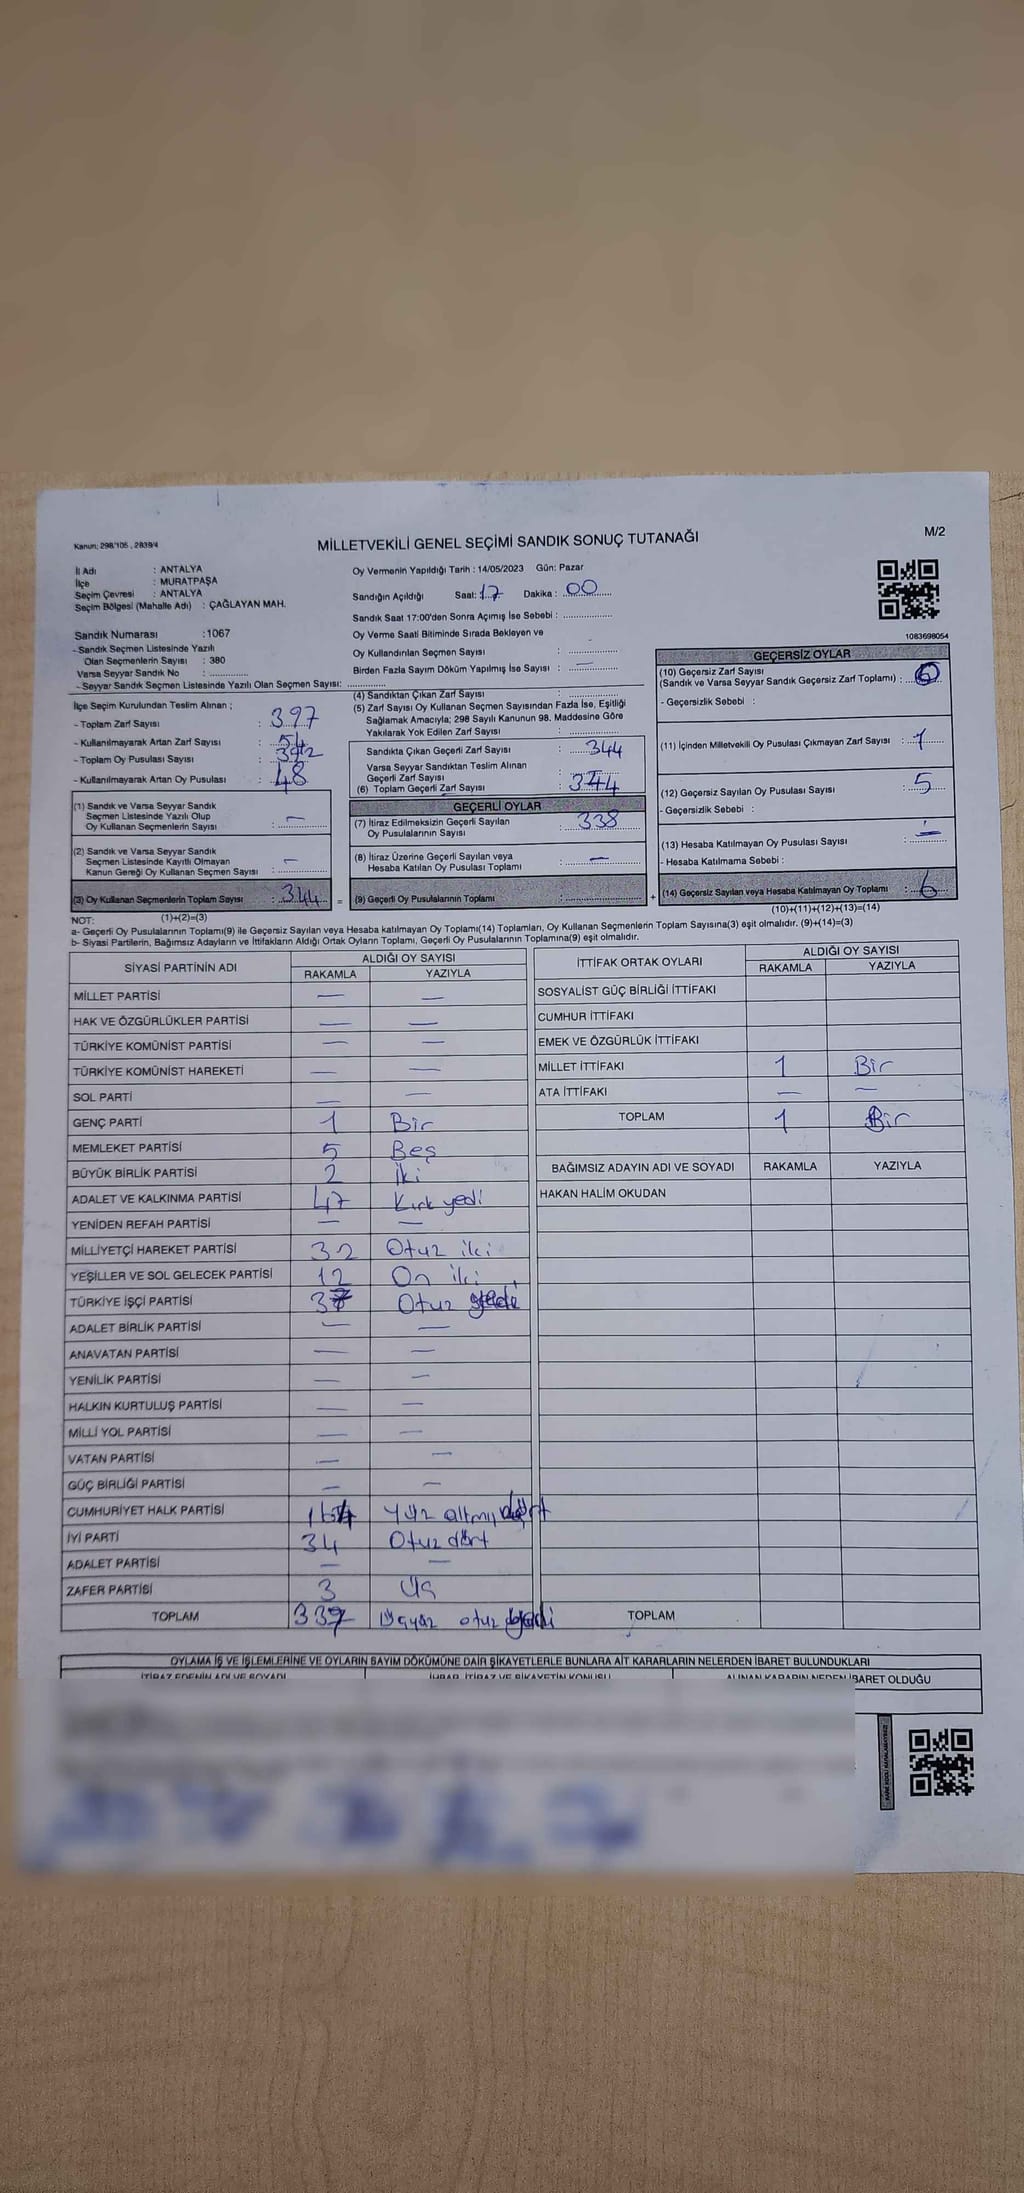 Kanun: 298/105 , 2839/4
MİLLETVEKİLİ GENEL SEÇİMİ SANDIK SONUÇ TUTANAĞI
M/2
İl Adı : ANTALYA
İlçe : MURATPAŞA
Seçim Çevresi : ANTALYA
Seçim Bölgesi (Mahalle Adı) : ÇAĞLAYAN MAH.
Sandık Numarası : 1067
- Sandık Seçmen Listesinde Yazılı
Olan Seçmenlerin Sayısı : 380
Varsa Seyyar Sandık No :
- Seyyar Sandık Seçmen Listesinde Yazılı Olan Seçmen Sayısı:
İlçe Seçim Kurulundan Teslim Alınan ;
- Toplam Zarf Sayısı : 397
- Kullanılmayarak Artan Zarf Sayısı : 54
- Toplam Oy Pusulası Sayısı : 392
- Kullanılmayarak Artan Oy Pusulası : 48
(1) Sandık ve Varsa Seyyar Sandık
Seçmen Listesinde Yazılı Olup
Oy Kullanan Seçmenlerin Sayısı : —
(2) Sandık ve Varsa Seyyar Sandık
Seçmen Listesinde Kayıtlı Olmayan
Kanun Gereği Oy Kullanan Seçmen Sayısı : —
(3) Oy Kullanan Seçmenlerin Toplam Sayısı : 344 =
(1)+(2)=(3)
Oy Vermenin Yapıldığı Tarih : 14/05/2023 Gün: Pazar
Sandığın Açıldığı Saat: 17 Dakika : 00
Sandık Saat 17:00'den Sonra Açımış İse Sebebi :
Oy Verme Saati Bitiminde Sırada Bekleyen ve
Oy Kullandırılan Seçmen Sayısı :
Birden Fazla Sayım Döküm Yapılmış İse Sayısı : —
(4) Sandıktan Çıkan Zarf Sayısı :
(5) Zarf Sayısı Oy Kullanan Seçmen Sayısından Fazla İse, Eşitliği
Sağlamak Amacıyla; 298 Sayılı Kanunun 98. Maddesine Göre
Yakılarak Yok Edilen Zarf Sayısı :
Sandıkta Çıkan Geçerli Zarf Sayısı : 344
Varsa Seyyar Sandıktan Teslim Alınan
Geçerli Zarf Sayısı : —
(6) Toplam Geçerli Zarf Sayısı : 344
GEÇERLİ OYLAR
(7) İtiraz Edilmeksizin Geçerli Sayılan
Oy Pusulalarının Sayısı : 338
(8) İtiraz Üzerine Geçerli Sayılan veya
Hesaba Katılan Oy Pusulası Toplamı : —
(9) Geçerli Oy Pusulalarının Toplamı : +
1083698054
GEÇERSİZ OYLAR
(10) Geçersiz Zarf Sayısı
(Sandık ve Varsa Seyyar Sandık Geçersiz Zarf Toplamı) :
- Geçersizlik Sebebi :
(11) İçinden Milletvekili Oy Pusulası Çıkmayan Zarf Sayısı : 1
(12) Geçersiz Sayılan Oy Pusulası Sayısı : 5
- Geçersizlik Sebebi :
(13) Hesaba Katılmayan Oy Pusulası Sayısı : —
- Hesaba Katılmama Sebebi :
(14) Geçersiz Sayılan veya Hesaba Katılmayan Oy Toplamı : 6
(10)+(11)+(12)+(13)=(14)
NOT:
a- Geçerli Oy Pusulalarının Toplamı(9) ile Geçersiz Sayılan veya Hesaba katılmayan Oy Toplamı(14) Toplamları, Oy Kullanan Seçmenlerin Toplam Sayısına(3) eşit olmalıdır. (9)+(14)=(3)
b- Siyasi Partilerin, Bağımsız Adayların ve İttifakların Aldığı Ortak Oyların Toplamı, Geçerli Oy Pusulalarının Toplamına(9) eşit olmalıdır.
SİYASİ PARTİNİN ADI
ALDIĞI OY SAYISI
RAKAMLA YAZIYLA
MİLLET PARTİSİ — —
HAK VE ÖZGÜRLÜKLER PARTİSİ — —
TÜRKİYE KOMÜNİST PARTİSİ — —
TÜRKİYE KOMÜNİST HAREKETİ — —
SOL PARTİ — —
GENÇ PARTİ 1 Bir
MEMLEKET PARTİSİ 5 Beş
BÜYÜK BİRLİK PARTİSİ 2 İki
ADALET VE KALKINMA PARTİSİ 47 Kırk yedi
YENİDEN REFAH PARTİSİ — —
MİLLİYETÇİ HAREKET PARTİSİ 32 Otuz iki
YEŞİLLER VE SOL GELECEK PARTİSİ 12 On iki
TÜRKİYE İŞÇİ PARTİSİ 37 Otuz
ADALET BİRLİK PARTİSİ — —
ANAVATAN PARTİSİ — —
YENİLİK PARTİSİ — —
HALKIN KURTULUŞ PARTİSİ — —
MİLLİ YOL PARTİSİ — —
VATAN PARTİSİ — —
GÜÇ BİRLİĞİ PARTİSİ — —
CUMHURİYET HALK PARTİSİ 164 Yüz altmış dört
İYİ PARTİ 34 Otuz dört
ADALET PARTİSİ — —
ZAFER PARTİSİ 3 Üç
TOPLAM 337 Üçyüz otuz yedi
İTTİFAK ORTAK OYLARI
ALDIĞI OY SAYISI
RAKAMLA YAZIYLA
SOSYALİST GÜÇ BİRLİĞİ İTTİFAKI
CUMHUR İTTİFAKI
EMEK VE ÖZGÜRLÜK İTTİFAKI
MİLLET İTTİFAKI 1 Bir
ATA İTTİFAKI — —
TOPLAM 1 Bir
BAĞIMSIZ ADAYIN ADI VE SOYADI RAKAMLA YAZIYLA
HAKAN HALİM OKUDAN
TOPLAM
OYLAMA İŞ VE İŞLEMLERİNE VE OYLARIN SAYIM DÖKÜMÜNE DAİR ŞİKAYETLERLE BUNLARA AİT KARARLARIN NELERDEN İBARET BULUNDUKLARI
İTİRAZ EDENİN ADI VE SOYADI İHBAR, İTİRAZ VE ŞİKAYETİN KONUSU ALINAN KARARIN NEDEN İBARET OLDUĞU